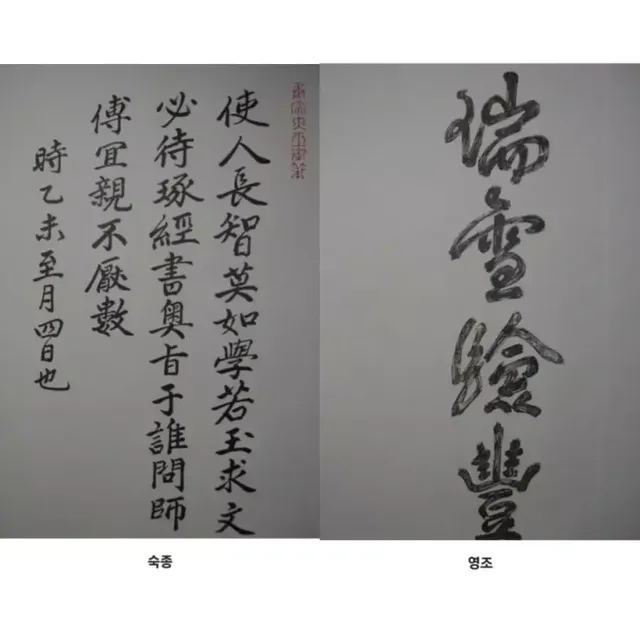 使人長智莫如學若玉求文
必待琢經書奧旨于誰問師
傅宜親不厭數
時乙未至月四日也
瑞雪驗豐
숙종
영조